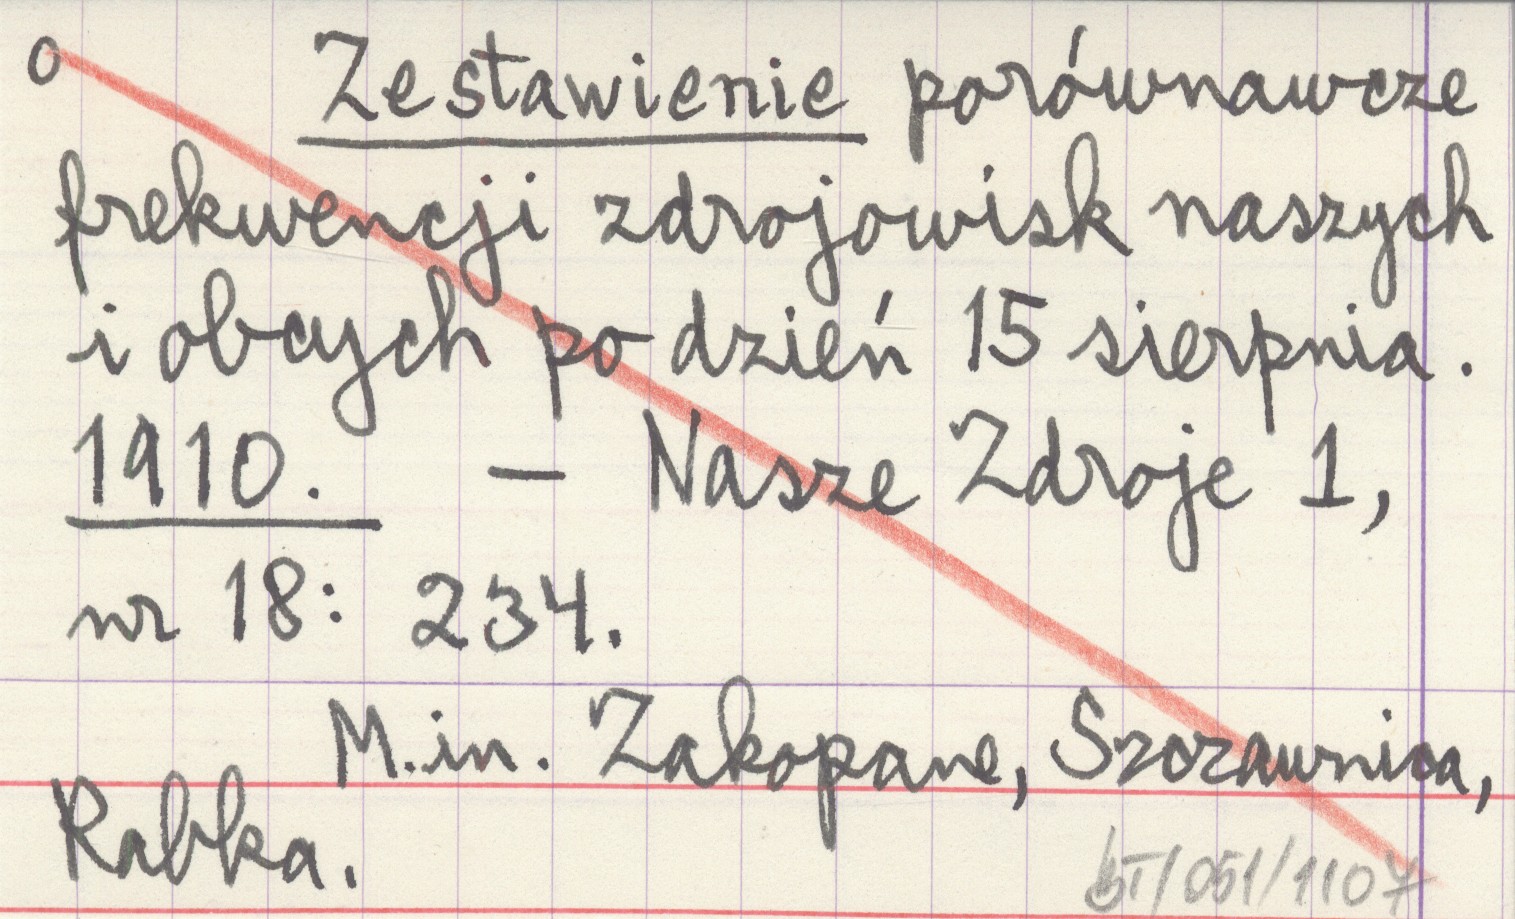 o Zestawienie porównawcze
frekwencji zdrojowisk naszych
i obcych po dzień 15 sierpnia.
1910. — Nasze Zdroje 1,
nr 18: 234.
M.in. Zakopane, Szczawnica,
Rabka.
/051/1107